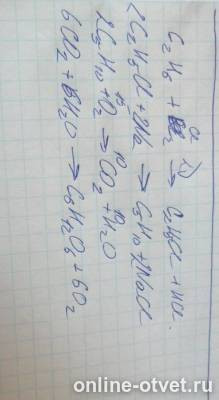 C₂H₆ + Cl₂ → C₂H₅Cl + HCl.
2C₂H₅Cl + 2Na → C₅H₁₀ + 2NaCl
2C₅H₁₀ + 15O₂ → 10CO₂ + 10H₂O
6CO₂ + 6H₂O → C₆H₁₂O₆ + 6O₂
online-otvet.ru